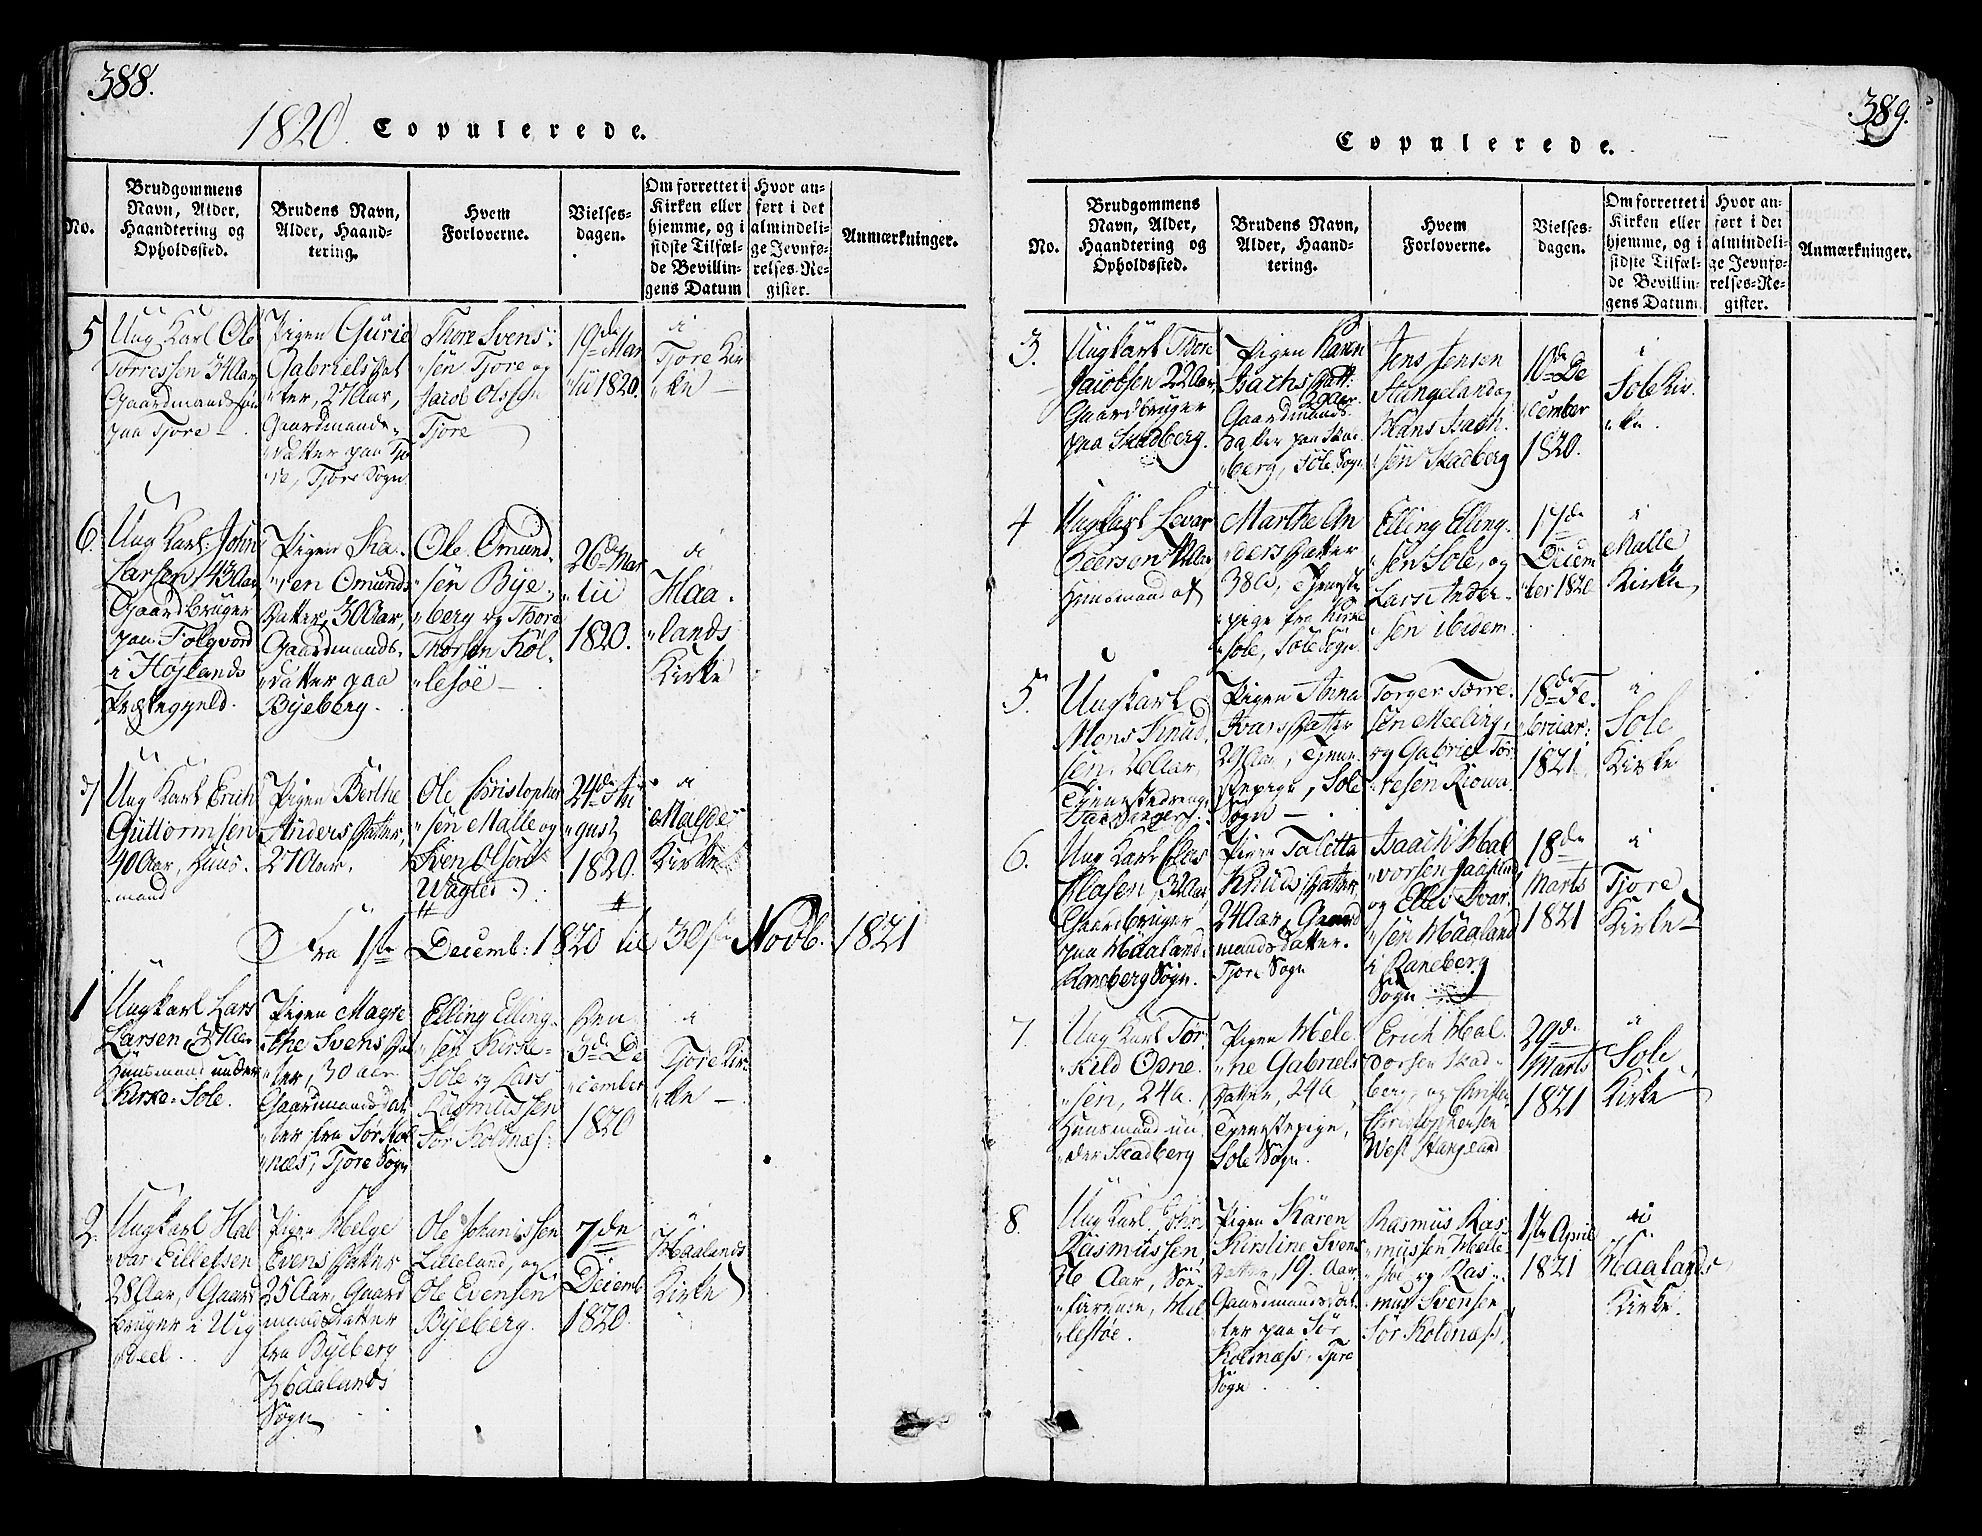 388.
1820. Copulerede.
No.
Brudgommens
Navn, Alder,
Haandtering og
Opholdssted.
Brudens Navn,
Alder, Haand-
tering.
Hvem
Forloverne.
Vielses-
dagen.
Om forrettet i
Kirken eller
hjemme, og i
sidste Tilfæl-
de Bevillin-
gens Datum
Hvor an-
ført i det
almindeli-
ge Jevnfø-
relses-Re-
gister.
Anmærkninger.
5
Ung Karl Ole
Torressen 34 Aar
Gaardmands
paa Tjore
Pigen Gurie
Gabrielsdat
ter, 27 Aar,
Gaardmands-
datter paa Tjo
re, Tjore Sogn
Thore Svens-
sen Tjore og
Jacob Olssen
Tjore
19de Mar
tii 1820.
i
Tjore Kir
ke
6.
Ung Karl John
Larsen, 43 Aar
Gaardbruger
paa Folgvord
i Højlands
Prækegjeld.
Pigen Ka-
ren Omunds
Datter, 30 Aar,
Gaardmands-
datter paa
Byeberg.
Ole Omund-
sen Bye-
berg og Thore
Thorsen Kol-
lesøe
26de Mar
tii
1820.
i
Haa-
lands
Kirke
7
Ung Karl Erich
Guttormsen
40 Aar, Huus-
mand
Pigen Berthe
Anders Datter,
27 Aar.
Ole Christopher
sen Malle og
Sven Olsen
24de Au
gust
1820.
i
Malde
Kirke
Fra 1ste Decemb: 1820 til 30te Novb. 1821
1
Ungkarl Lars
Larsen, 37 Aar
Huusmand under
Kirke-Sole.
Pigen Magre
the Svens Dat
ter, 30 aar
Gaardmandsdat
ter fra Sør Kol
næs, Tjore Sogn
Elling Elling-
sen Kirke-
Sole og Lars
Rasmussen
Sør Kolnæs.
Den
3de De
cember
1820
i
Tjore Kir
ke
2.
Ungkarl Hal
var Eilletsen
28 Aar, Gaard
bruger i Uig
deel.
Pigen Helge
Evens Datter
25 Aar, Gaard
mands Datter
fra Byeberg
Haalands
Sogn
Ole Johanissen
Lilleland, og
Ole Evensen
Byeberg.
7de
Decemb
1820.
i
Haalands
Kirke
389.
Copulerede.
No.
Brudgommens
Navn, Alder,
Haandtering og
Opholdssted.
Brudens Navn,
Alder, Haand-
tering.
Hvem
Forloverne.
Vielses-
dagen.
Om forrettet i
Kirken eller
hjemme, og i
sidste Tilfæl-
de Bevillin-
gens Datum.
Hvor an-
ført i det
almindeli-
ge Jevnfø-
relses-Re-
gister.
Anmærkninger.
3.
Ungkarl Thore
Jacobsen 22 Aar,
Gaardbruger
paa Skadberg.
Pigen Karen
Isachs Datt:
29 Aar
Gaardmands
datter paa Ska
berg, Sole Sogn
Jens Jensen
Stangeland og
Hans Isach-
sen Skadberg
10de De
cember
1820.
i
Sole Kir-
ke.
4
Ungkarl Levar
Huusmand af
Marthe An
ders Datter
38 a, Tjeneste
pige fra Kirke
Sole, Sole Sogn
Elling Elling-
sen Sole, og
Lars Ander-
sen ibidem
17de
Decem
ber 1820
i
Malle
Kirke
5.
Ungkarl
Mons Knud
sen, 26 Aar,
Tjenestedreng
Pigen Anna
Ivars Datter
29 Aar, Tjene
stepige, Sole
Sogn
Torger Torre-
sen Meeling,
og Gabriel Tor
resen
18de Fe-
bruar:
1821
i
Sole
Kirke
6.
Ung Karl Clas
Clasen, 32 Aar,
Gaardbruger
paa Haaland,
Raneberg Sogn.
Pigen Taletta
Knuds Datter
24 Aar, Gaard
mandsdatter.
Tjore Sogn
Isach Hal
vorsen
og Ellev Ivar
sen Haaland
i Raneberg
Sogn
18de
Marts
1821
i
Tjore
Kirke
7.
Ung Karl Tør-
kild Odne-
sen, 24 a.
Huusmand un-
der Skadberg
Pigen Hele
ne Gabriels
Datter, 24 a
Tjenestepige,
Sole Sogn.
Erich Hal
vorsen Skad
berg, og Christen
Christophersen
West Stangeland
29de
Marts
1821
i
Sole
Kirke
8.
Ung Karl John
Rasmussen,
Aar, Søe-
farende,
lesøe.
Pigen Karen
Kirstine Svens
Datter, 19 Aar
Gaardmandsdat
ter paa Sør
Kolnæss, Tjore
Sogn
Rasmus Ras
mussen
og Ras-
mus Svensen
Sør Kolnæss,
1ste April
1821
i
Haalands
Kirke.